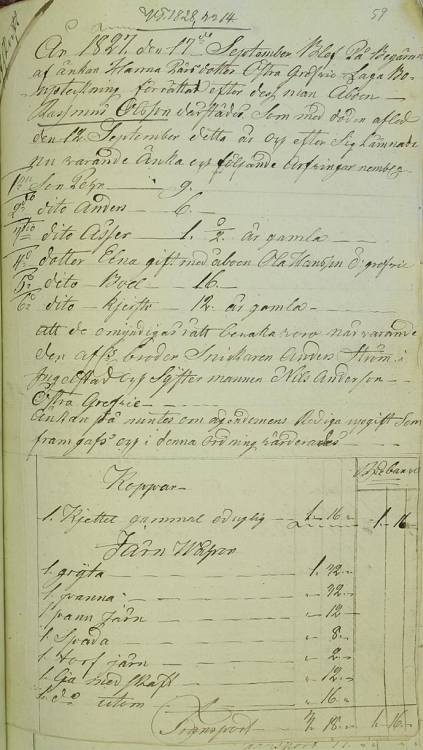 VT. 1828, no 14
59
År 1827. den 17de September Blef På Begäran
af änkan Hanna Pärsdotter Östra Grefvie Laga Bo-
upteckning förrättad efter dess man Åboen
Rassmus Olsson derstädes, som med döden afled
den 12 September detta år och efter Sig Lämnade
nu varande Änka och följande Arfvingar
1mo Son Pehr — 9.
2do dito Anders — 6.
3tio dito Asser — 1. 1/2. år gamla —
4to dotter Elna gift med åboen Ola Hansson Ö: grefvie
5to dito Boel — 16. —
6to dito Kjersti — 12. år gamla —
att de omyndigas rätt bevaka voro närvarande
den afl: broder Snickaren Anders Ström i
Ingelstad och Syster mannen Nils Anderson
Östra Grefvie
Änkan på mintes om ägendomens Rediga uppgift Som
framgafs och i denna Ordning värderades
Koppar
1. Kjettel gammal oduglig — 1. 16. 1. 16
Järn Waror
1. gryta — 1. 32.
1. panna — " 32.
1. pann järn — " 12
1. Spada — " 8.
1. torf järn — " 2.
1. Lia med skaft — " 12.
1. do utom — " 16.
Transport 3 18. 1. 16